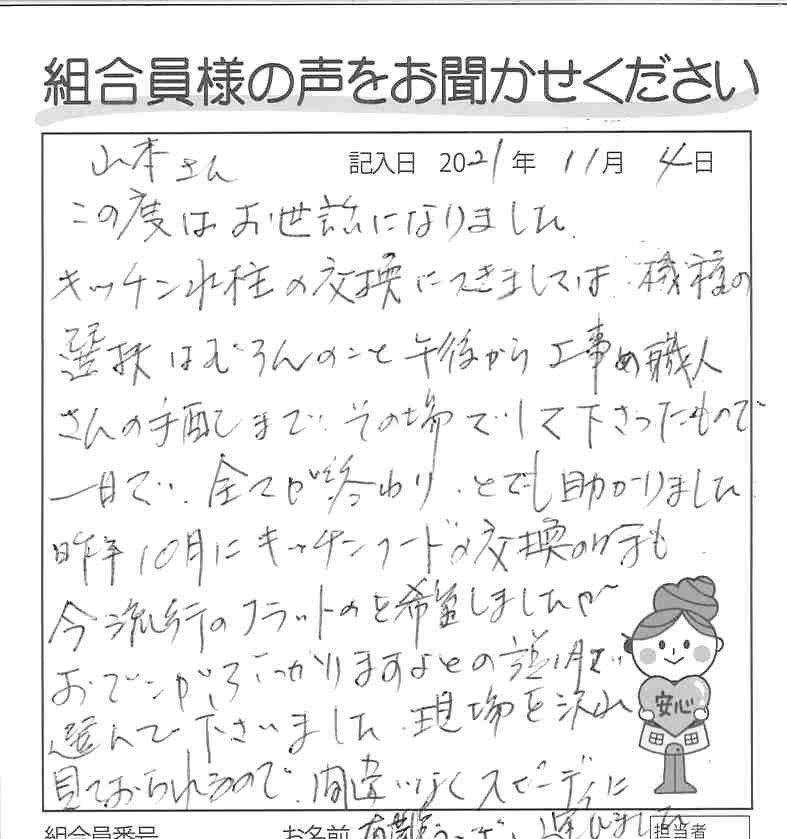 組合員様の声をお聞かせください
山本さん 記入日 2021年 11月 4日
この度はお世話になりました
キッチン水柱の交換につきましては 機種の
選択はむろんのこと午後から工事の職人
さんの手配まで その場でして下さったもので
一日で 全てが終わり とても助かりました
昨年10月にキッチンフードの交換の時も
今流行のフラットのを希望しましたが
おでこがぶつかりますよとの説明で
選んで下さいました 現場を沢山
見ておられるので 間違いなくスピーディに
安心
組合員番号 お名前 担当者